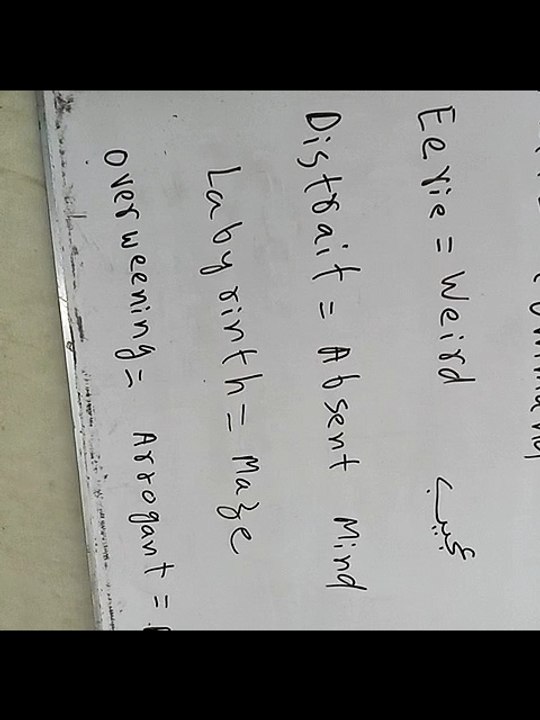 Eerie = Weird عجیب
Distrait = Absent Mind
Labyrinth = Maze
overweening = Arrogant =